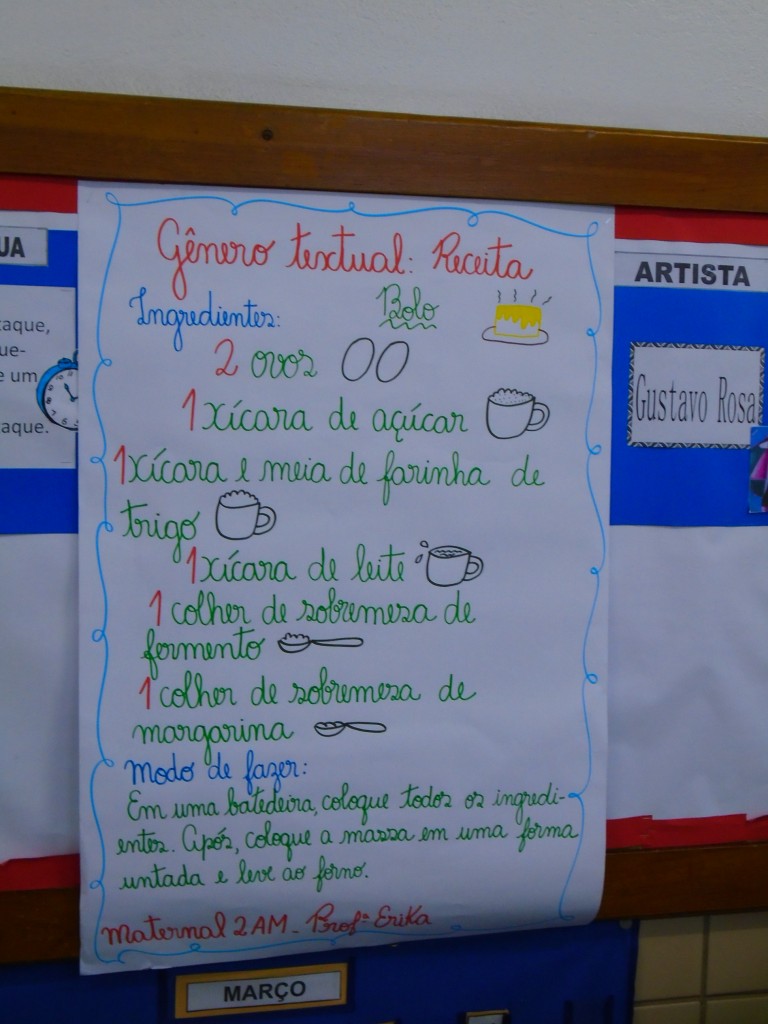 Gênero textual: Receita
Ingredientes:
Bolo
2 ovos
1 xícara de açúcar
1 xícara e meia de farinha de
trigo
1 xícara de leite
1 colher de sobremesa de
fermento
1 colher de sobremesa de
margarina
Modo de fazer:
Em uma batedeira, coloque todos os ingredi-
entes. Após, coloque a massa em uma forma
untada e leve ao forno.
Maternal 2 AM - Profª Erika
UA
taque,
ue-
e um
aque.
ARTISTA
Gustavo Rosa
MARÇO